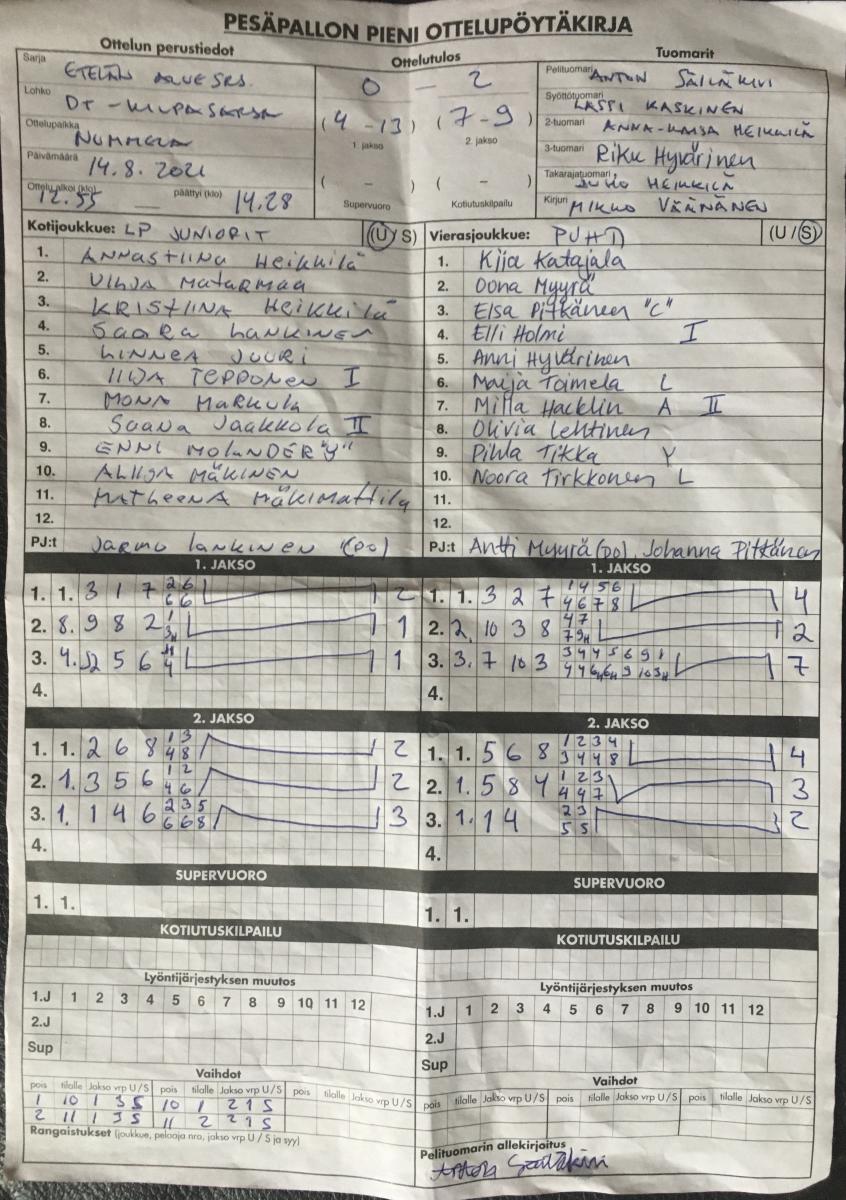 PESÄPALLON PIENI OTTELUPÖYTÄKIRJA
Ottelun perustiedot
Ottelutulos
Tuomarit
Sarja
0 - 2
Pelituomari ANTON SÄILÄKIVI
Lohko
Syöttötuomari LASSI KASKINEN
Ottelupaikka NUMMELA
(4 - 13) (7 - 9)
1. jakso 2. jakso
2-tuomari ANNA-KAISA HEIKKILÄ
Päivämäärä 14.8.2021
3-tuomari Riku Hyvärinen
Takarajatuomari JUHO HEIKKILÄ
Ottelu alkoi (klo) 12.55 päättyi (klo) 14.28
( - ) ( - )
Supervuoro Kotiutuskilpailu
Kirjuri MIKKO VÄÄNÄNEN
Kotijoukkue: LP JUNIORIT (U / S)
Vierasjoukkue: (U / S)
1. ANNASTIINA HEIKKILÄ
2. VILJA MATARMAA
3. KRISTIINA HEIKKILÄ
4. SAARA LANKINEN
5. LINNEA JUURI
6. TEPPONEN I
7. MONA MARKULA
8. SAANA JAAKKOLA II
9. ENNI MOLANDER "Y"
10. MÄKINEN
11. MATHEENA MÄKIMATTILA
12.
PJ:t JARMO LANKINEN (PO)
1. Kija Katajala
2. Oona Myyrä
3. Elsa Pitkänen "C"
4. Elli Holmi I
5. Anni Hyvärinen
6. Maija Toimela L
7. Milla Hacklin A II
8. Olivia Lehtinen
9. Pihla Tikka Y
10. Noora Tirkkonen L
11.
12.
PJ:t Antti Myyrä (PO), Johanna Pitkänen
1. JAKSO
1. 1. 3 1 7 2 6 2
6 6
2. 8. 9 8 2 1
3. 4. 5 6 1
4.
1. JAKSO
1. 1. 3 2 7 1 4 5 6 4
4 6 7 8
2. 2. 10 3 8 4 7 2
7 9H
3. 3. 7 10 3 3 4 4 5 6 9 1 7
4.
2. JAKSO
1. 1. 2 6 8 1 3 2
4 8
2. 1. 3 5 6 1 2 2
4 6
3. 1. 1 4 6 2 3 5 3
6 6 8
4.
2. JAKSO
1. 1. 5 6 8 1 2 3 4 4
3 4 4 8
2. 1. 5 8 4 1 2 3 3
4 4 7
3. 1. 1 4 2 3 2
5 5
4.
SUPERVUORO
1. 1.
SUPERVUORO
1. 1.
KOTIUTUSKILPAILU
KOTIUTUSKILPAILU
Lyöntijärjestyksen muutos
1.J 1 2 3 4 5 6 7 8 9 10 11 12
2.J
Sup
Lyöntijärjestyksen muutos
1.J 1 2 3 4 5 6 7 8 9 10 11 12
2.J
Sup
Vaihdot
pois tilalle Jakso vrp U / S pois tilalle Jakso vrp U / S pois tilalle Jakso vrp U / S
1 10 1 3 S 10 1 2 1 S
2 11 1 3 S 11 2 2 1 S
Rangaistukset (joukkue, pelaaja nro, jakso vrp U / S ja syy)
Vaihdot
pois tilalle Jakso vrp U / S pois tilalle Jakso vrp U / S pois tilalle Jakso vrp U / S
Pelituomarin allekirjoitus
Anton Säiläkivi